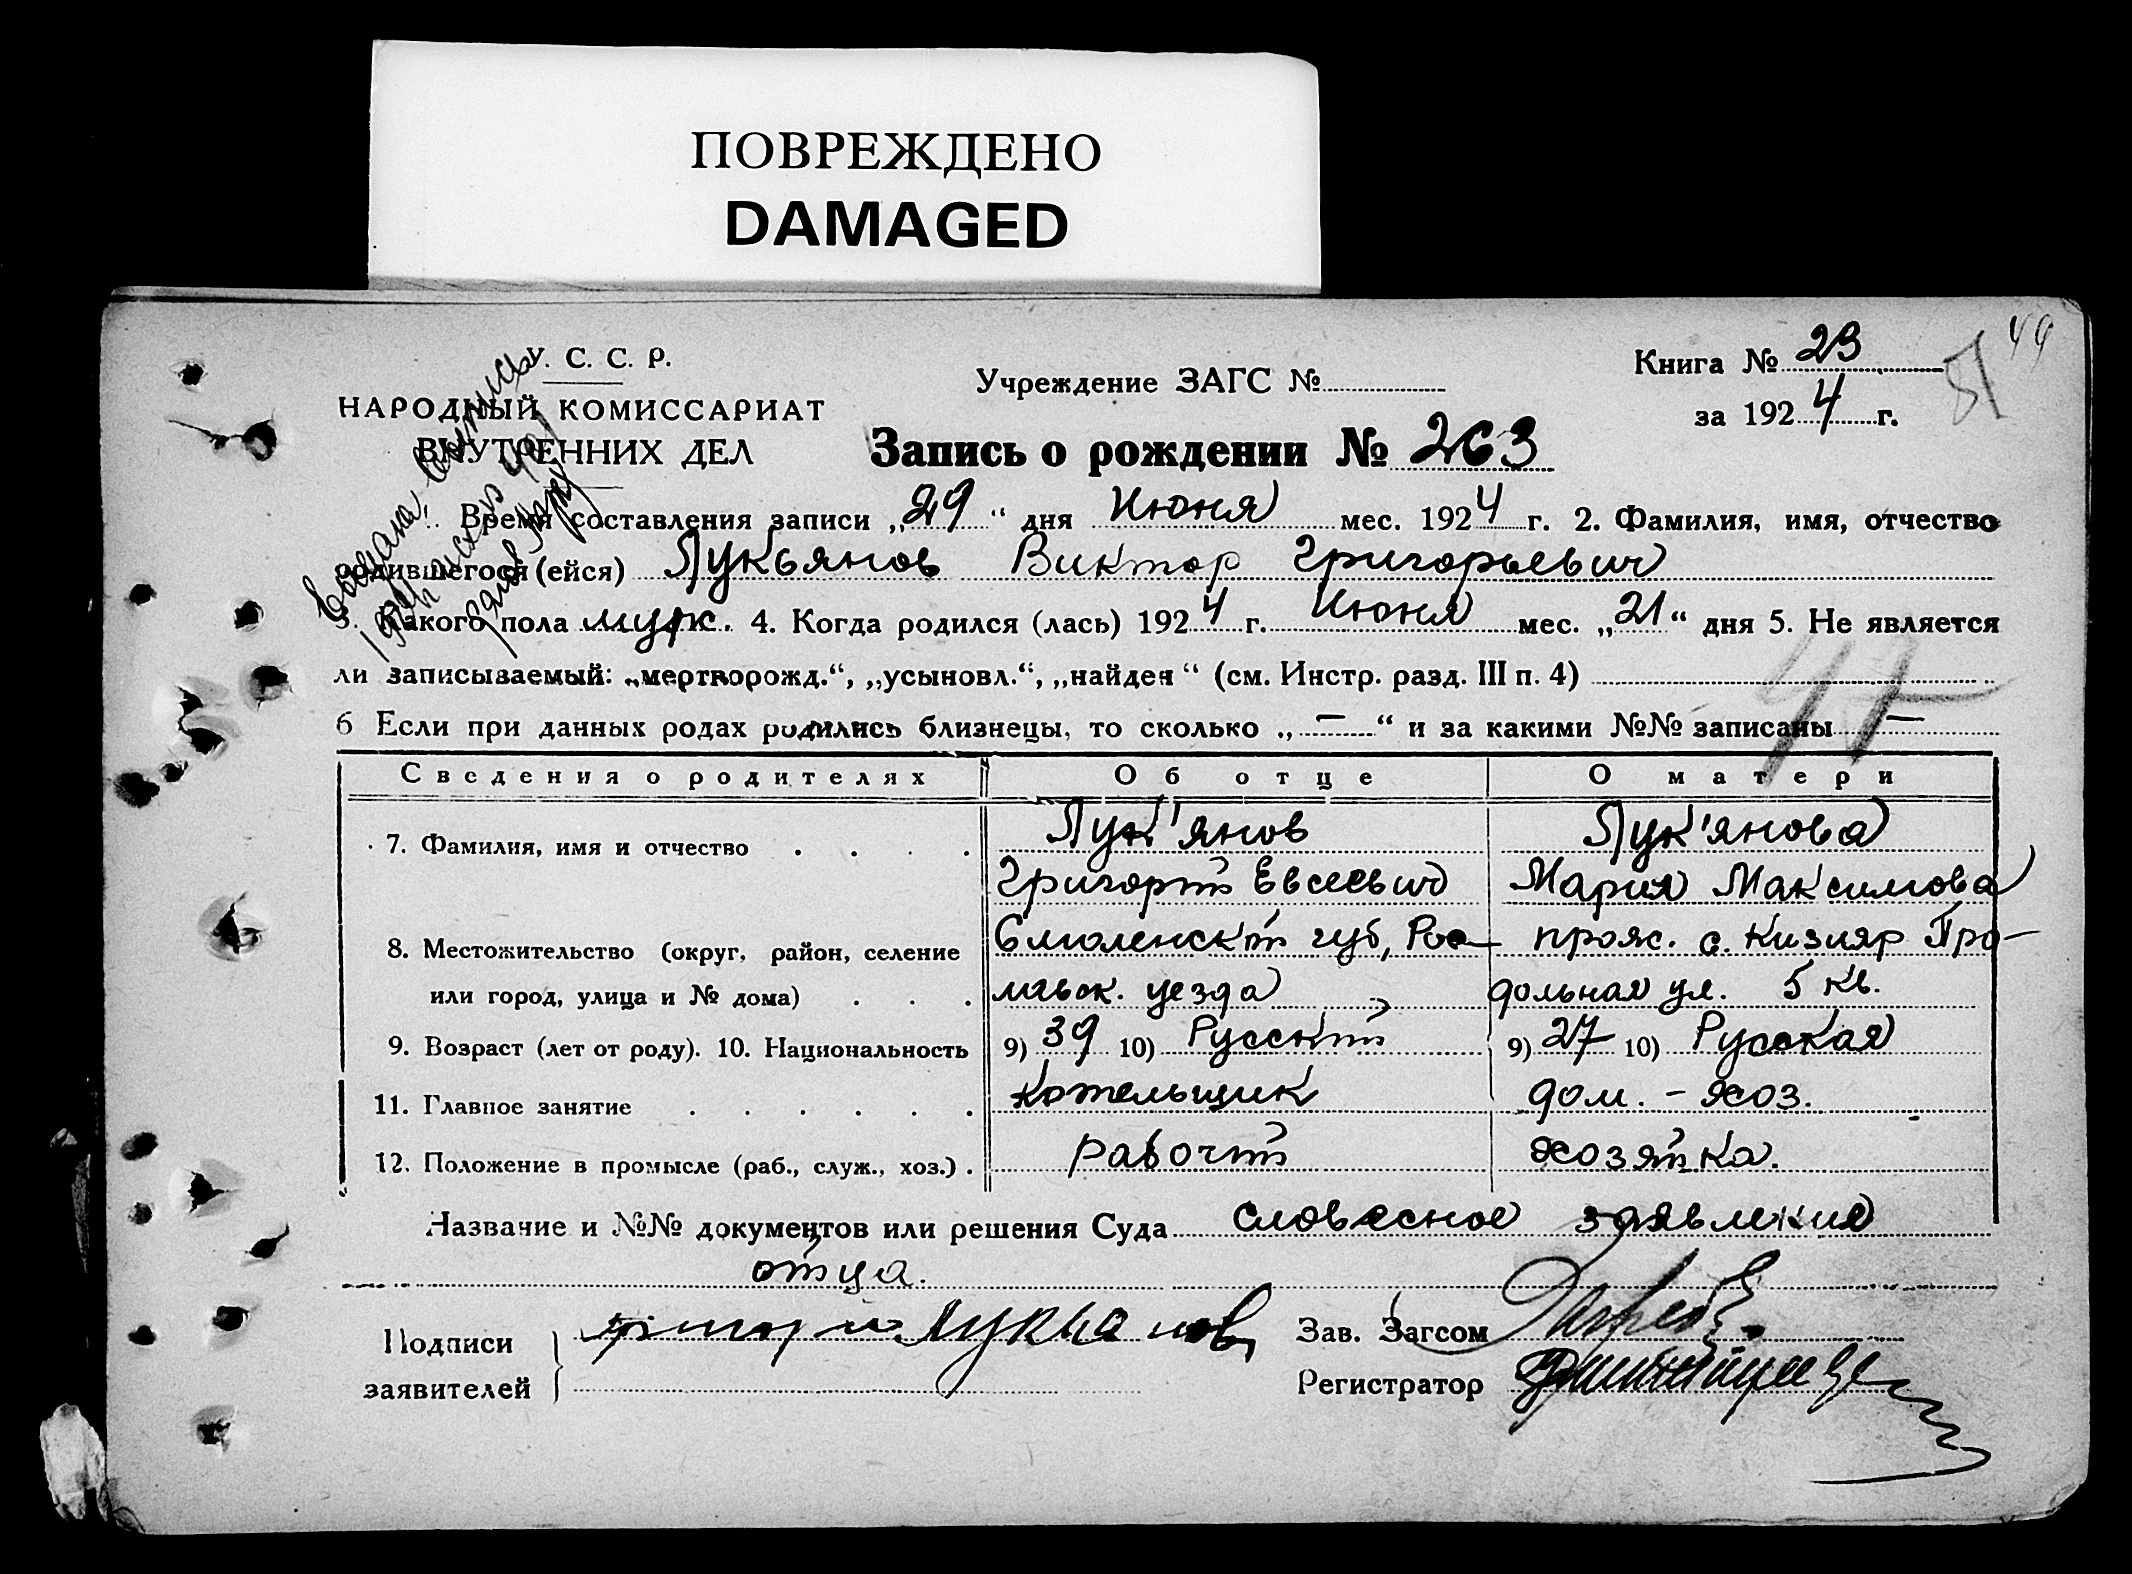 ПОВРЕЖДЕНО
DAMAGED
У. С. С. Р.
НАРОДНЫЙ КОМИССАРИАТ
ВНУТРЕННИХ ДЕЛ
Учреждение ЗАГС №
Книга № 23
за 1924 г.
49
Запись о рождении № 263
Время составления записи „29“ дня Июня мес. 1924 г. 2. Фамилия, имя, отчество
родившегося (ейся) Лукьянов Виктор Григорьевич
3. Какого пола муж. 4. Когда родился (лась) 1924 г. Июня мес. „21“ дня 5. Не является
ли записываемый: „мертворожд.“, „усыновл.“, „найден“ (см. Инстр. разд. III п. 4)
47
6 Если при данных родах родились близнецы, то сколько „—“ и за какими №№ записаны —
Сведения о родителях Об отце О матери
7. Фамилия, имя и отчество Лук'янов Лук'янова
Григорій Евсеевич Мария Максимова
8. Местожительство (округ, район, селение Смоленск губ, прож. с. Кизияр Про-
или город, улица и № дома) уезда дольная ул. 5 кв.
9. Возраст (лет от роду). 10. Национальность 9) 39 10) Русский 9) 27 10) Русская
11. Главное занятие Котельщик дом. - хоз.
12. Положение в промысле (раб., служ., хоз.) рабочий хозяйка.
Название и №№ документов или решения Суда словесное заявление
отца.
Подписи Лукьянов Зав. Загсом
заявителей Регистратор